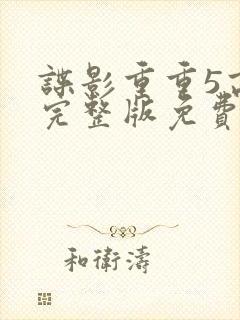 諜影重重5高
完整版免費
和衛濤